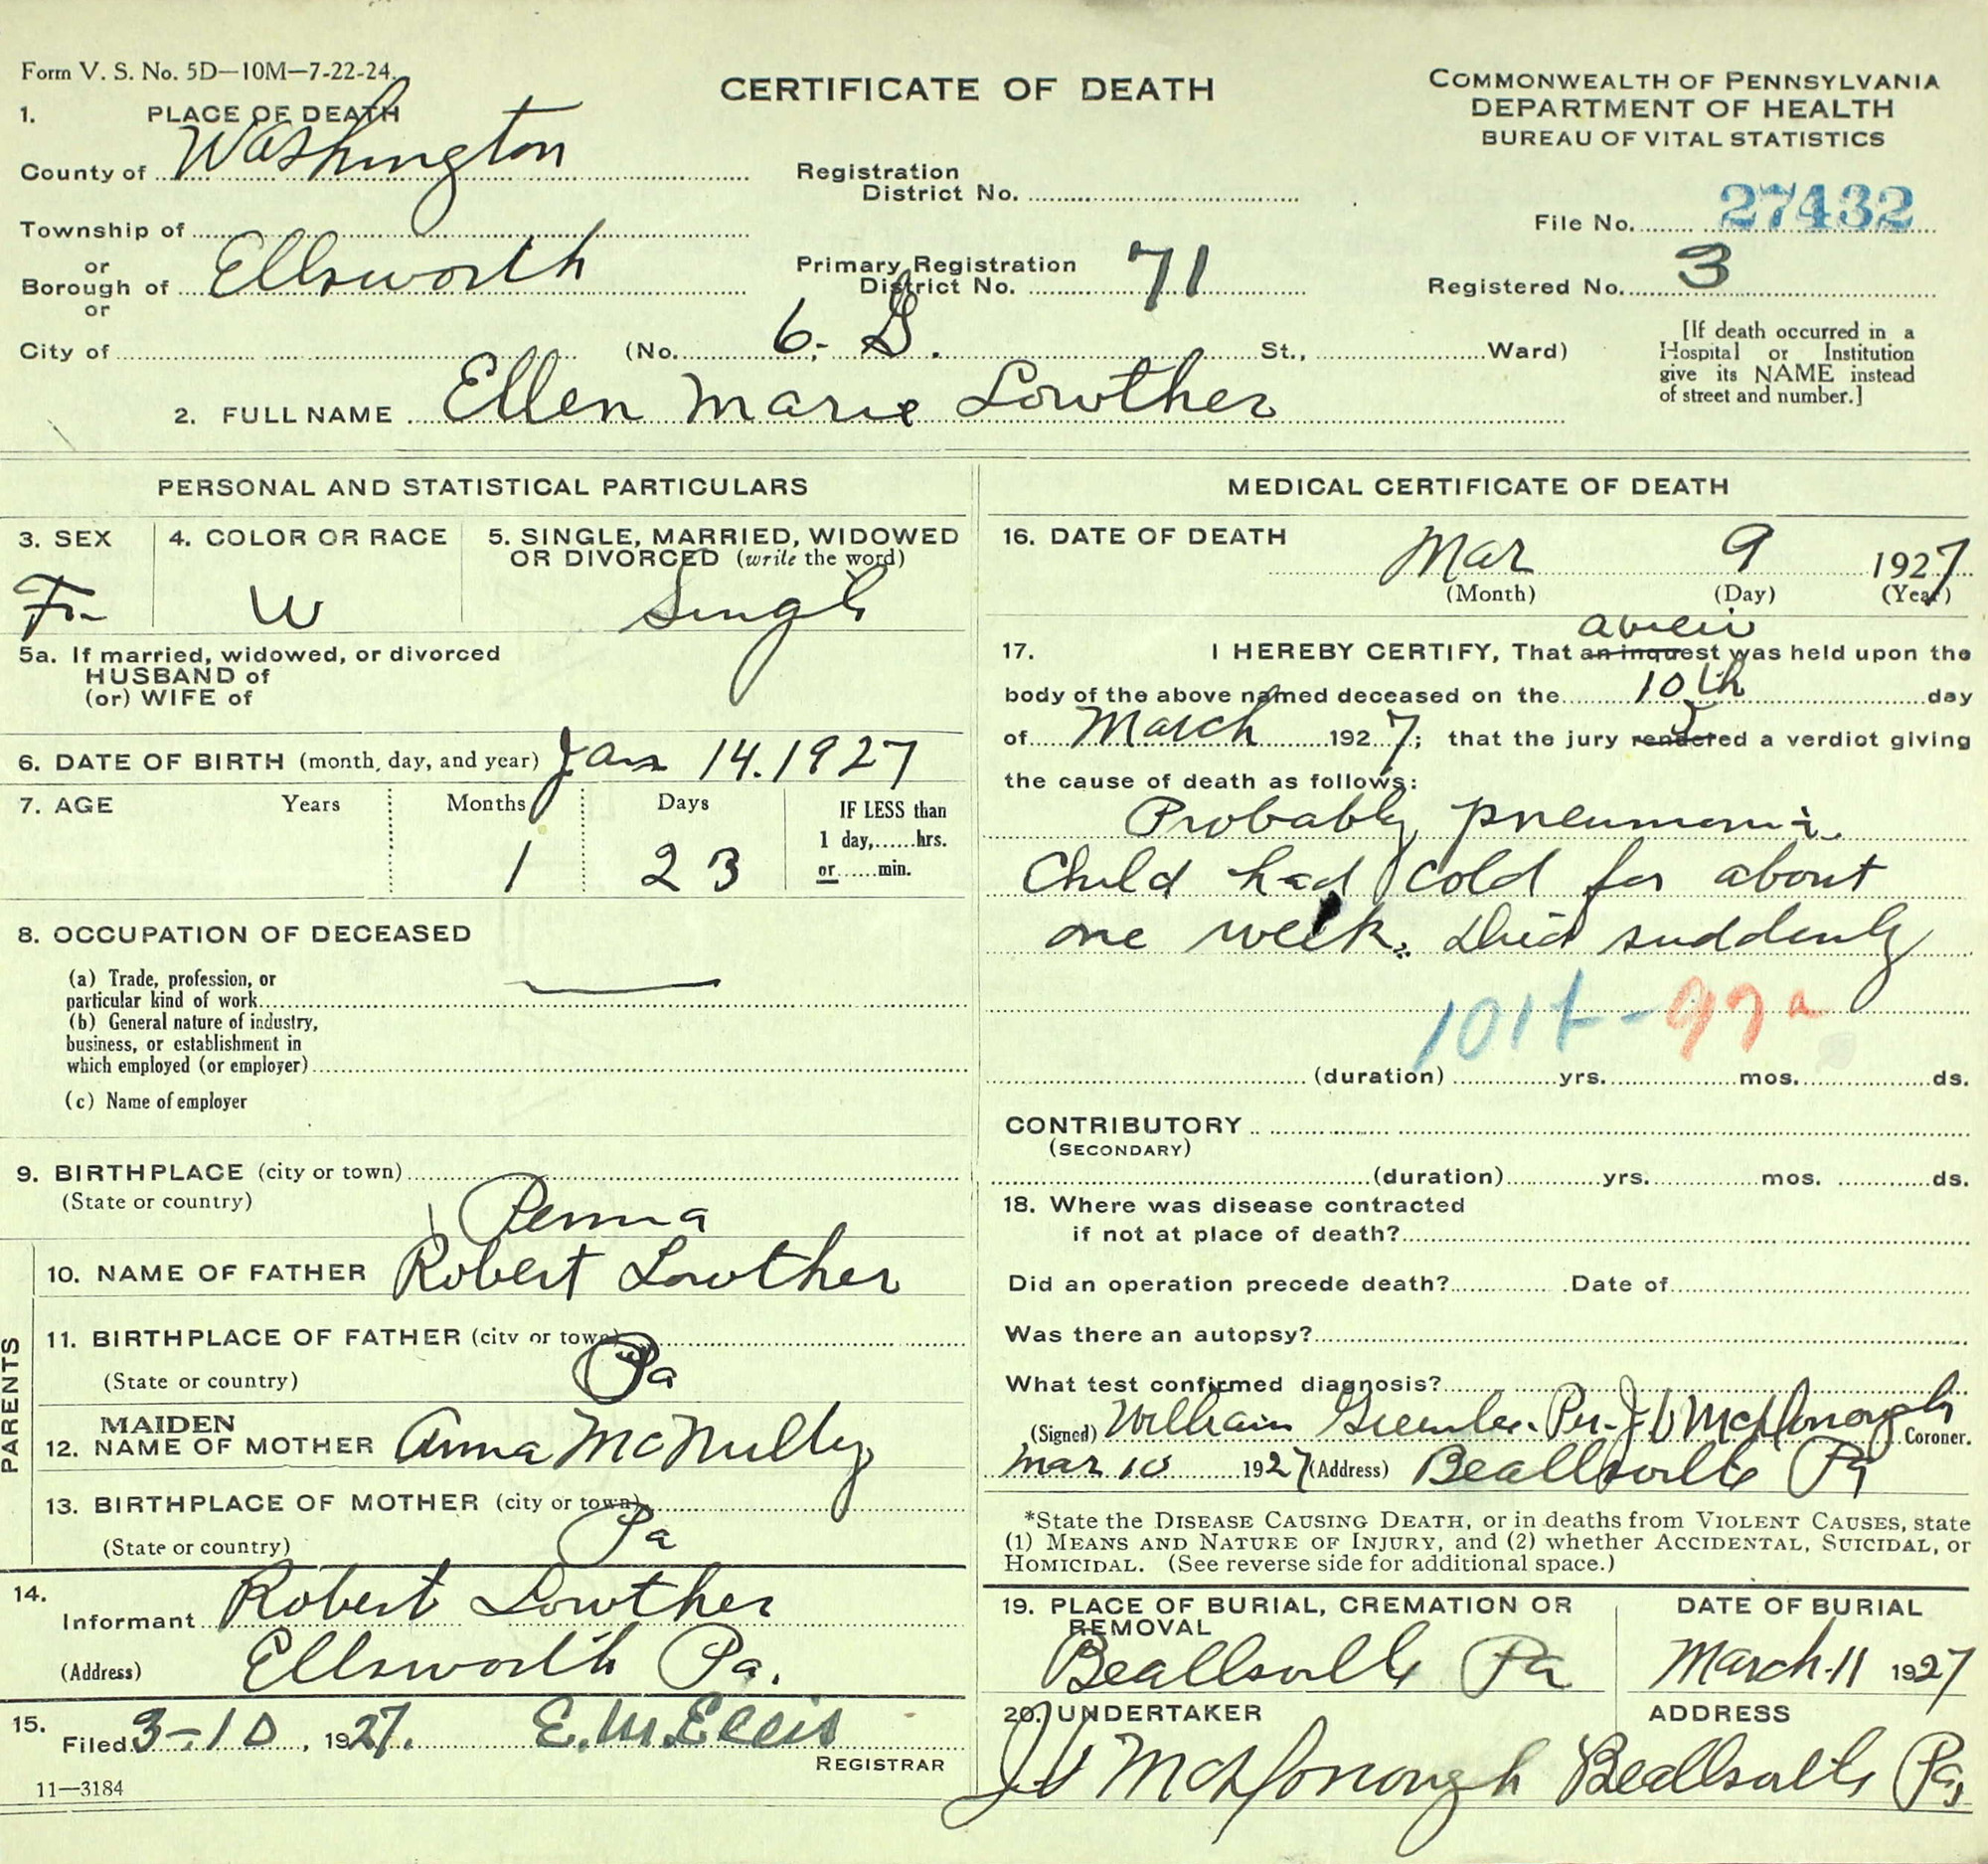 Form V. S. No. 5D—10M—7-22-24.
CERTIFICATE OF DEATH
COMMONWEALTH OF PENNSYLVANIA
DEPARTMENT OF HEALTH
BUREAU OF VITAL STATISTICS
1. PLACE OF DEATH
County of Washington
Registration
District No.
File No. 27432
Township of
or
Borough of Ellsworth
or
Primary Registration
District No. 71
Registered No. 3
City of (No. 6. G. St., Ward)
[If death occurred in a
Hospital or Institution
give its NAME instead
of street and number.]
2. FULL NAME Ellen Marie Lowther
PERSONAL AND STATISTICAL PARTICULARS
3. SEX
F
4. COLOR OR RACE
W
5. SINGLE, MARRIED, WIDOWED
OR DIVORCED (write the word)
Single
5a. If married, widowed, or divorced
HUSBAND of
(or) WIFE of
6. DATE OF BIRTH (month, day, and year) Jan 14. 1927
7. AGE Years Months Days IF LESS than
1 day,......hrs.
or......min.
1 23
8. OCCUPATION OF DECEASED
(a) Trade, profession, or
particular kind of work
(b) General nature of industry,
business, or establishment in
which employed (or employer)
(c) Name of employer
9. BIRTHPLACE (city or town)
(State or country) Penna
PARENTS
10. NAME OF FATHER Robert Lowther
11. BIRTHPLACE OF FATHER (city or town)
(State or country) Pa
MAIDEN
12. NAME OF MOTHER Anna McNulty
13. BIRTHPLACE OF MOTHER (city or town)
(State or country) Pa
14.
Informant Robert Lowther
(Address) Ellsworth Pa.
15.
Filed 3-10, 1927. E. M. Ellis
REGISTRAR
11—3184
MEDICAL CERTIFICATE OF DEATH
16. DATE OF DEATH
Mar 9 1927
(Month) (Day) (Year)
a view
17. I HEREBY CERTIFY, That an inquest was held upon the
body of the above named deceased on the 10th day
of March 1927; that the jury rendered a verdict giving
the cause of death as follows:
Probably pneumonia.
Child had cold for about
one week. Died suddenly
101t-97a
(duration) yrs. mos. ds.
CONTRIBUTORY
(SECONDARY)
(duration) yrs. mos. ds.
18. Where was disease contracted
if not at place of death?
Did an operation precede death? Date of
Was there an autopsy?
What test confirmed diagnosis?
(Signed) William Greenlee. Per. J V McDonough Coroner.
Mar 10 1927 (Address) Beallsville Pa
*State the DISEASE CAUSING DEATH, or in deaths from VIOLENT CAUSES, state
(1) MEANS AND NATURE OF INJURY, and (2) whether ACCIDENTAL, SUICIDAL, or
HOMICIDAL. (See reverse side for additional space.)
19. PLACE OF BURIAL, CREMATION OR
REMOVAL
Beallsville Pa
DATE OF BURIAL
March-11 1927
20. UNDERTAKER
ADDRESS
J V McDonough Beallsville Pa,